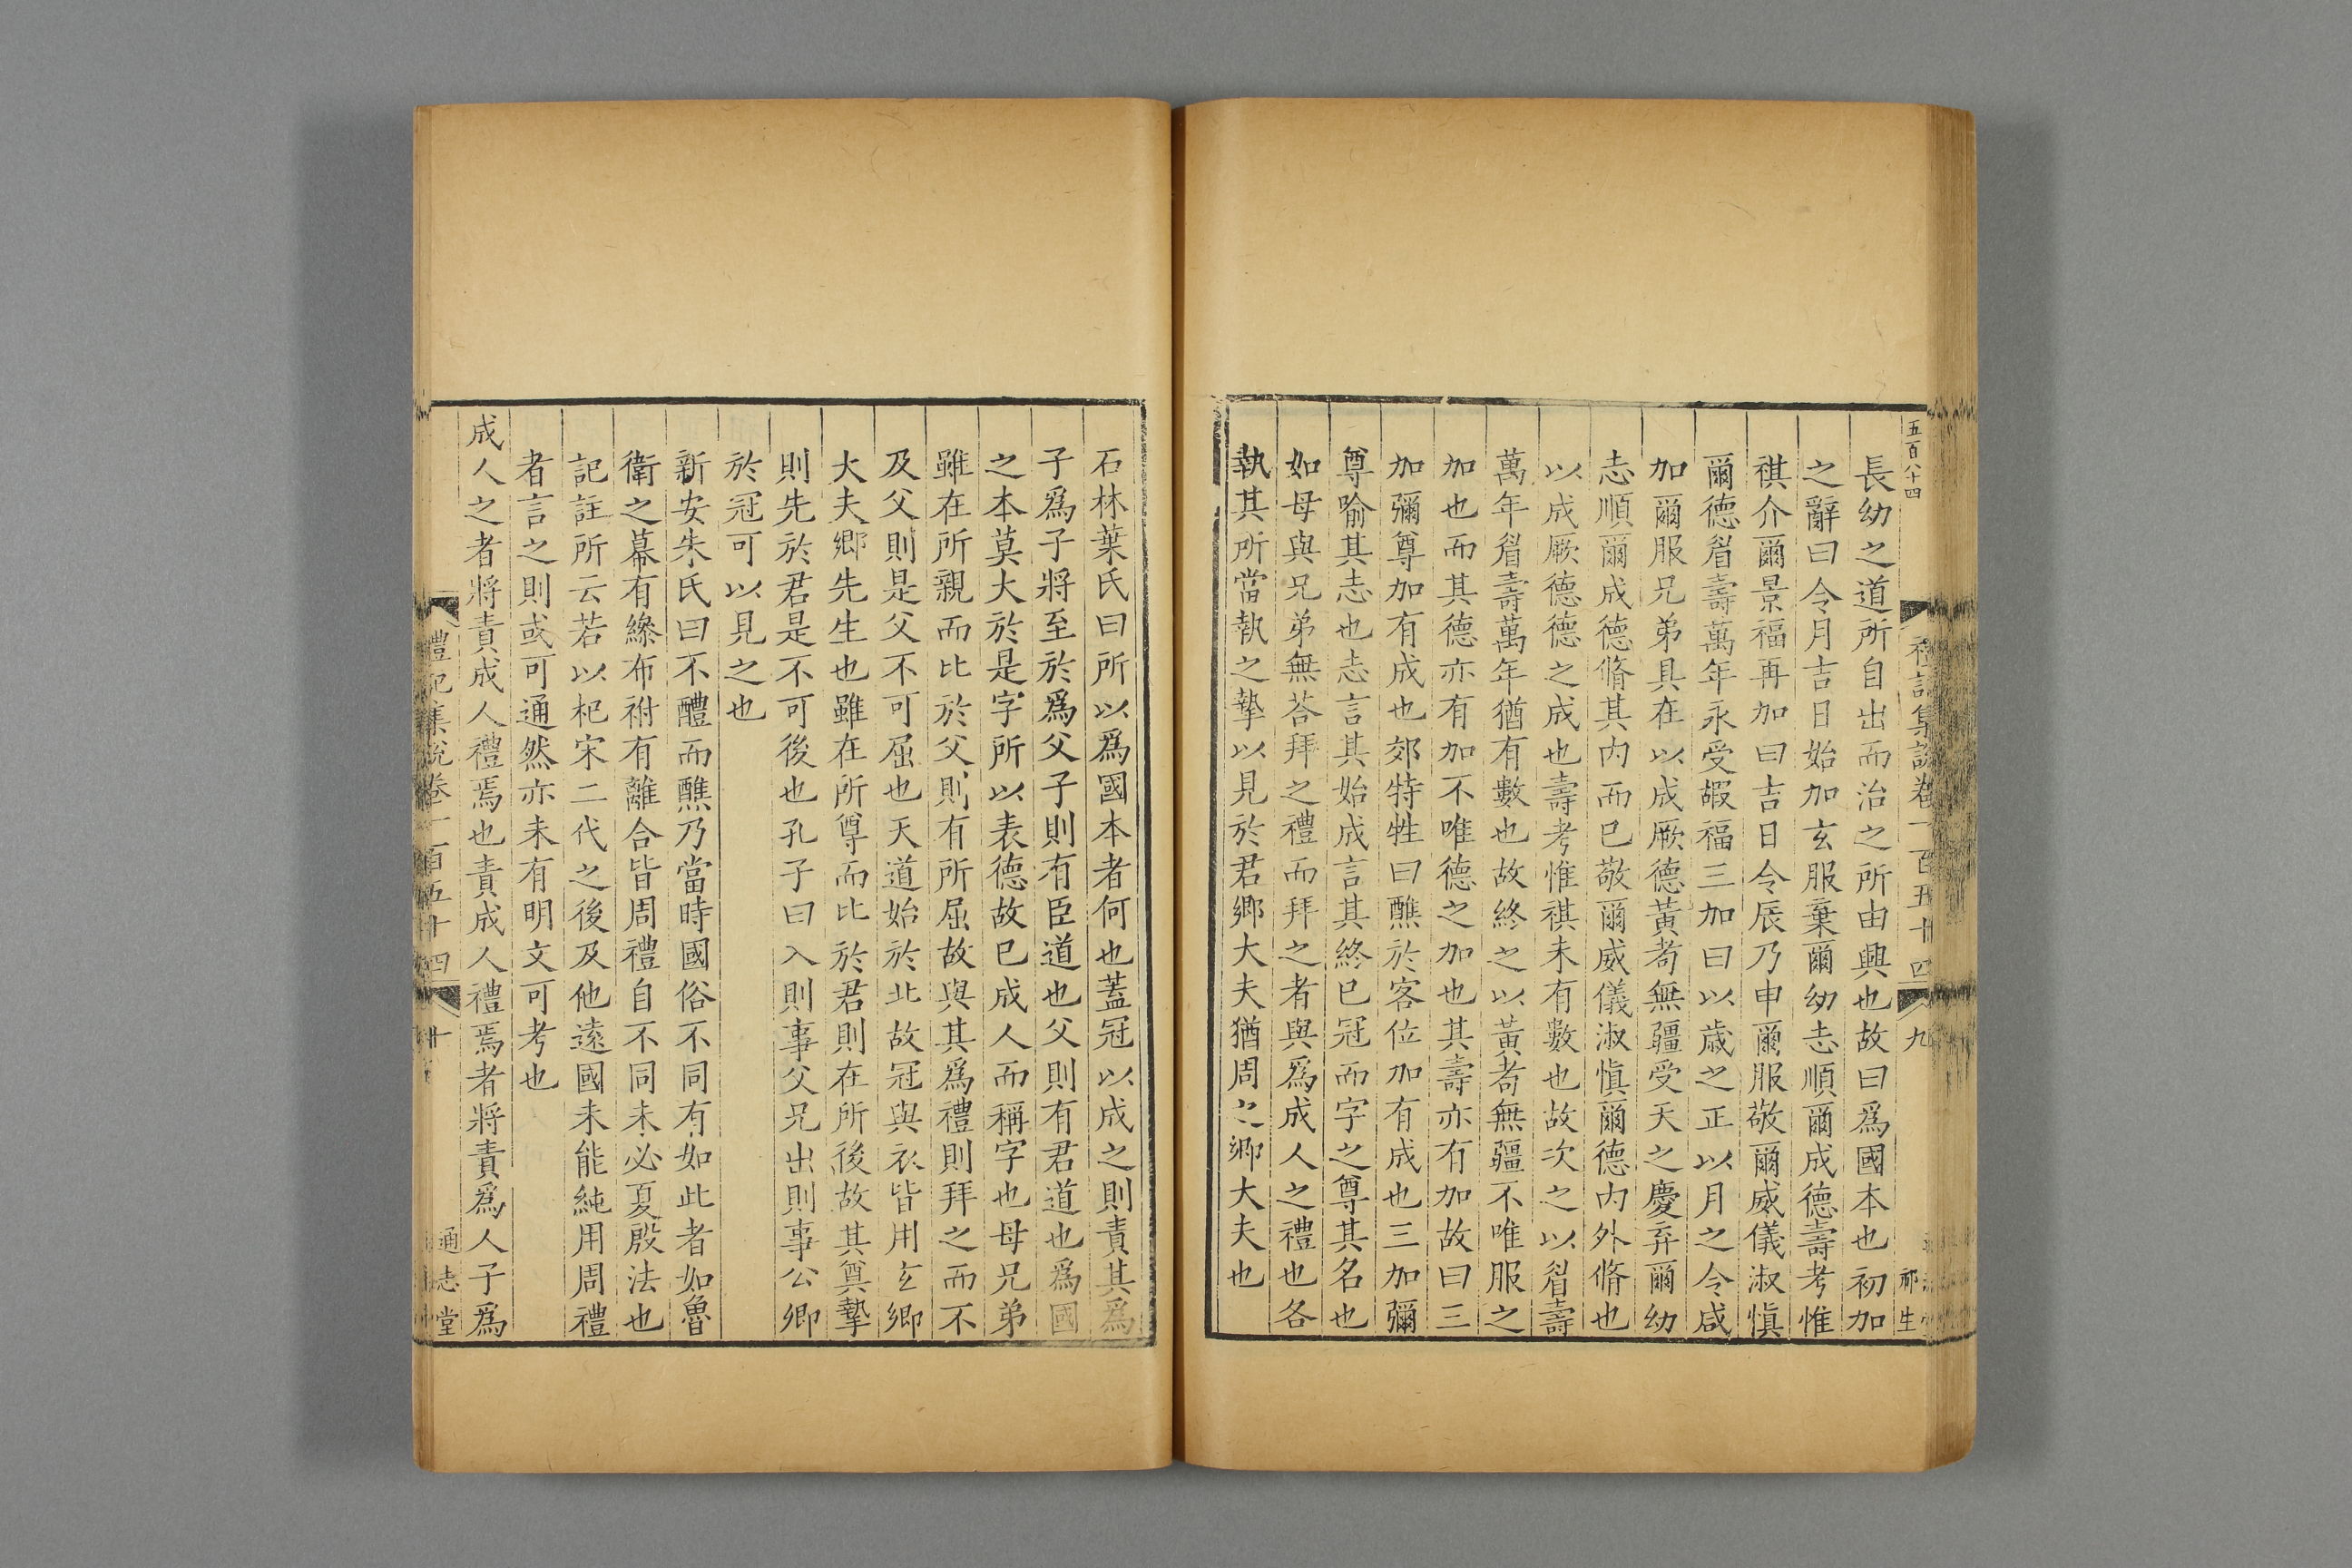 五百八十四
禮記集說卷一百五十四
九
祁生
長幼之道所自出而治之所由興也故曰爲國本也初加
之辭曰令月吉日始加玄服棄爾幼志順爾成德壽考惟
祺介爾景福再加曰吉日令辰乃申爾服敬爾威儀淑慎
爾德眉壽萬年永受嘏福三加曰以歲之正以月之令咸
加爾服兄弟具在以成厥德黃耇無疆受天之慶弃爾幼
志順爾成德脩其內而已敬爾威儀淑慎爾德內外脩也
以成厥德德之成也壽考惟祺未有數也故次之以眉壽
萬年眉壽萬年猶有數也故終之以黃耇無疆不唯服之
加也而其德亦有加不唯德之加也其壽亦有加故曰三
加彌尊加有成也郊特牲曰醮於客位加有成也三加彌
尊喻其志也志言其始成言其終已冠而字之尊其名也
如母與兄弟無荅拜之禮而拜之者與爲成人之禮也各
執其所當執之摯以見於君鄉大夫猶周之鄉大夫也
石林葉氏曰所以爲國本者何也蓋冠以成之則責其爲
子爲子將至於爲父子則有臣道也父則有君道也爲國
之本莫大於是字所以表德故已成人而稱字也母兄弟
雖在所親而比於父則有所屈故與其爲禮則拜之而不
及父則是父不可屈也天道始於北故冠與衣皆用玄卿
大夫鄉先生也雖在所尊而比於君則在所後故其奠摯
則先於君是不可後也孔子曰入則事父兄出則事公卿
於冠可以見之也
新安朱氏曰不醴而醮乃當時國俗不同有如此者如魯
衛之幕有縿布祔有離合皆周禮自不同未必夏殷法也
記註所云若以杞宋二代之後及他遠國未能純用周禮
者言之則或可通然亦未有明文可考也
成人之者將責成人禮焉也責成人禮焉者將責爲人子爲
禮記集說卷一百五十四
十
通志堂